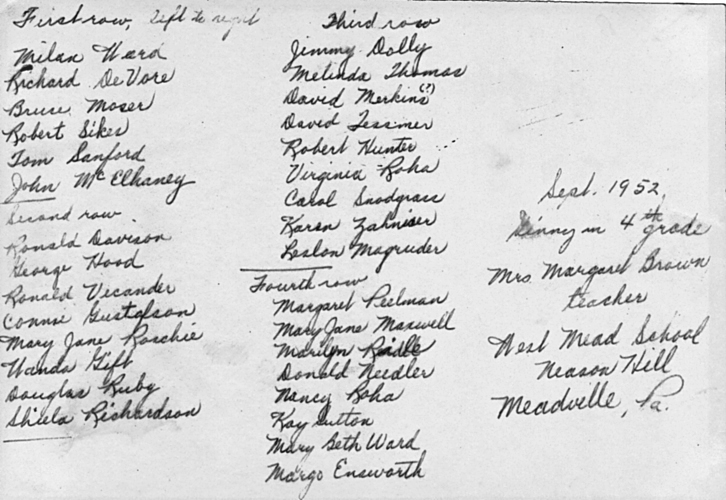 First row, left to right
Milan Ward
Richard DeVore
Bruce Moser
Robert Sikes
Tom Sanford
John McElhaney
Second row
Ronald Davison
George Hood
Ronald Vecander
Connie Gustafson
Mary Jane Roschie
Wanda Gift
Douglas Ruby
Shiela Richardson
Third row
Jimmy Dolly
Melinda Thomas
David Merkins(?)
David Tessmer
Robert Hunter
Virginia Roha
Carol Snodgrass
Karen Zahniser
Leslon Magruder
Fourth row
Margaret Peelman
Mary Jane Maxwell
Marilyn Riddle
Donald Needler
Nancy Roha
Kay Sutton
Mary Beth Ward
Margo Ensworth
Sept. 1952,
in 4th grade
Mrs. Margaret Brown
teacher
West Mead School
Neason Hill
Meadville, Pa.